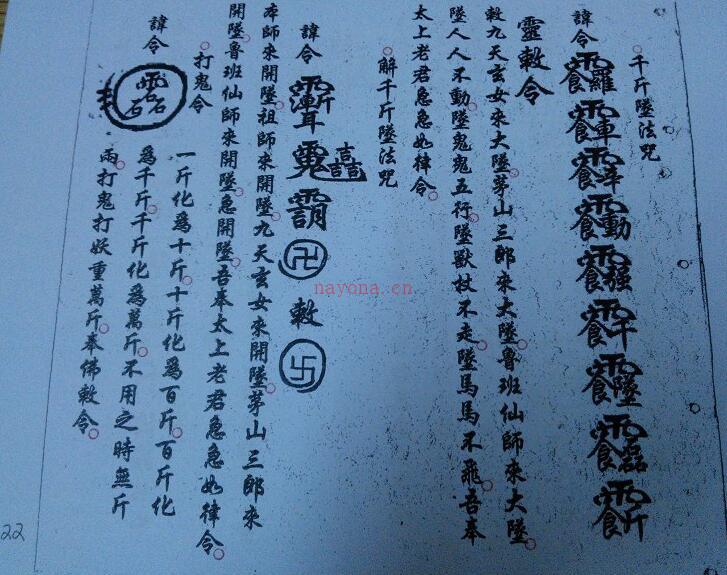 千斤墜法咒
諱令
靈敕令
敕九天玄女來大墜茅山三郎來大墜魯班仙師來大
墜人人不動墜鬼鬼五行墜獸杖不走墜馬馬不飛吾奉
太上老君急急如律令
解千斤墜法咒
諱令 卍 敕 卐
本師來開墜祖師來開墜九天玄女來開墜茅山三郎來
開墜魯班仙師來開墜急開墜吾奉太上老君急急如律令
打鬼令
諱令
一斤化為十斤十斤化為百斤百斤化
為千斤千斤化為萬斤不用之時無斤
兩打鬼打妖重萬斤奉佛敕令
22
nayona.cn